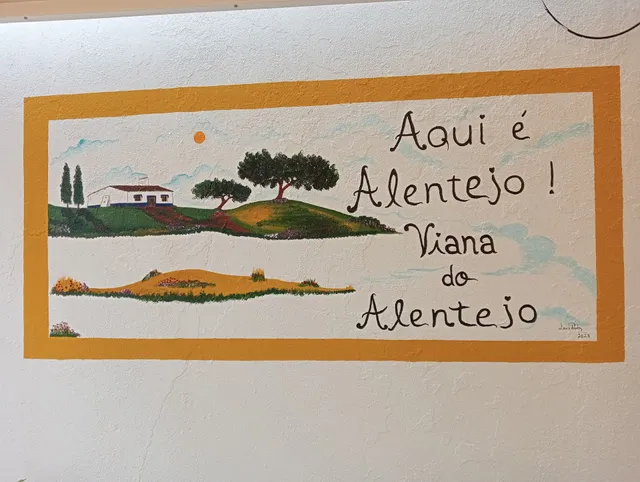 Aqui é
Alentejo !
Viana
do
Alentejo